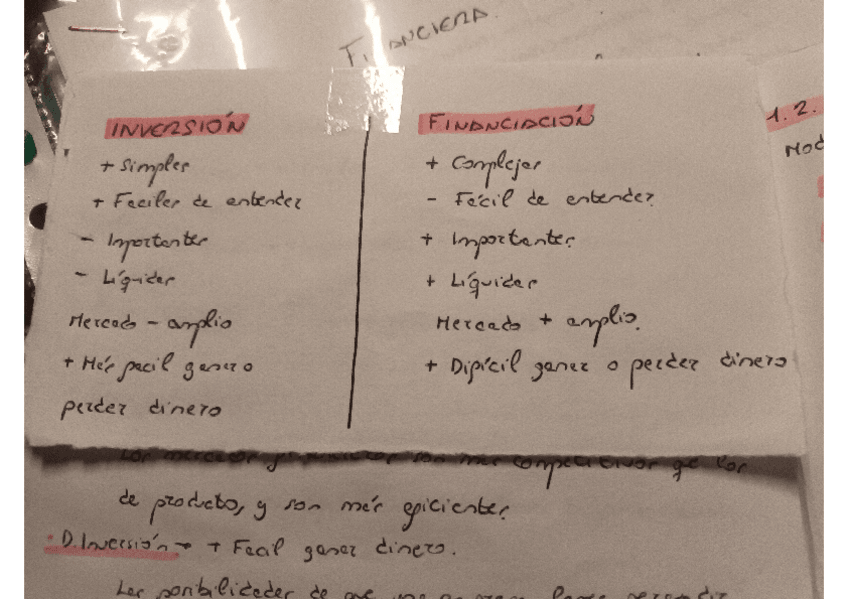 FINANCIERA.
INVERSIÓN
+ Simples
+ Fáciles de entender
- Importantes
- Líquidas
Mercado - amplio
+ Más facil ganar o
perder dinero
FINANCIACIÓN
+ Complejas
- Fácil de entender.
+ Importantes.
+ Líquidas
Mercado + amplio.
+ Difícil ganar o perder dinero
1.2.
Mod
son más competitivos qe los
de producto, y son más eficientes.
· D. Inversión → + Facil ganar dinero.
Las posibilidades de que